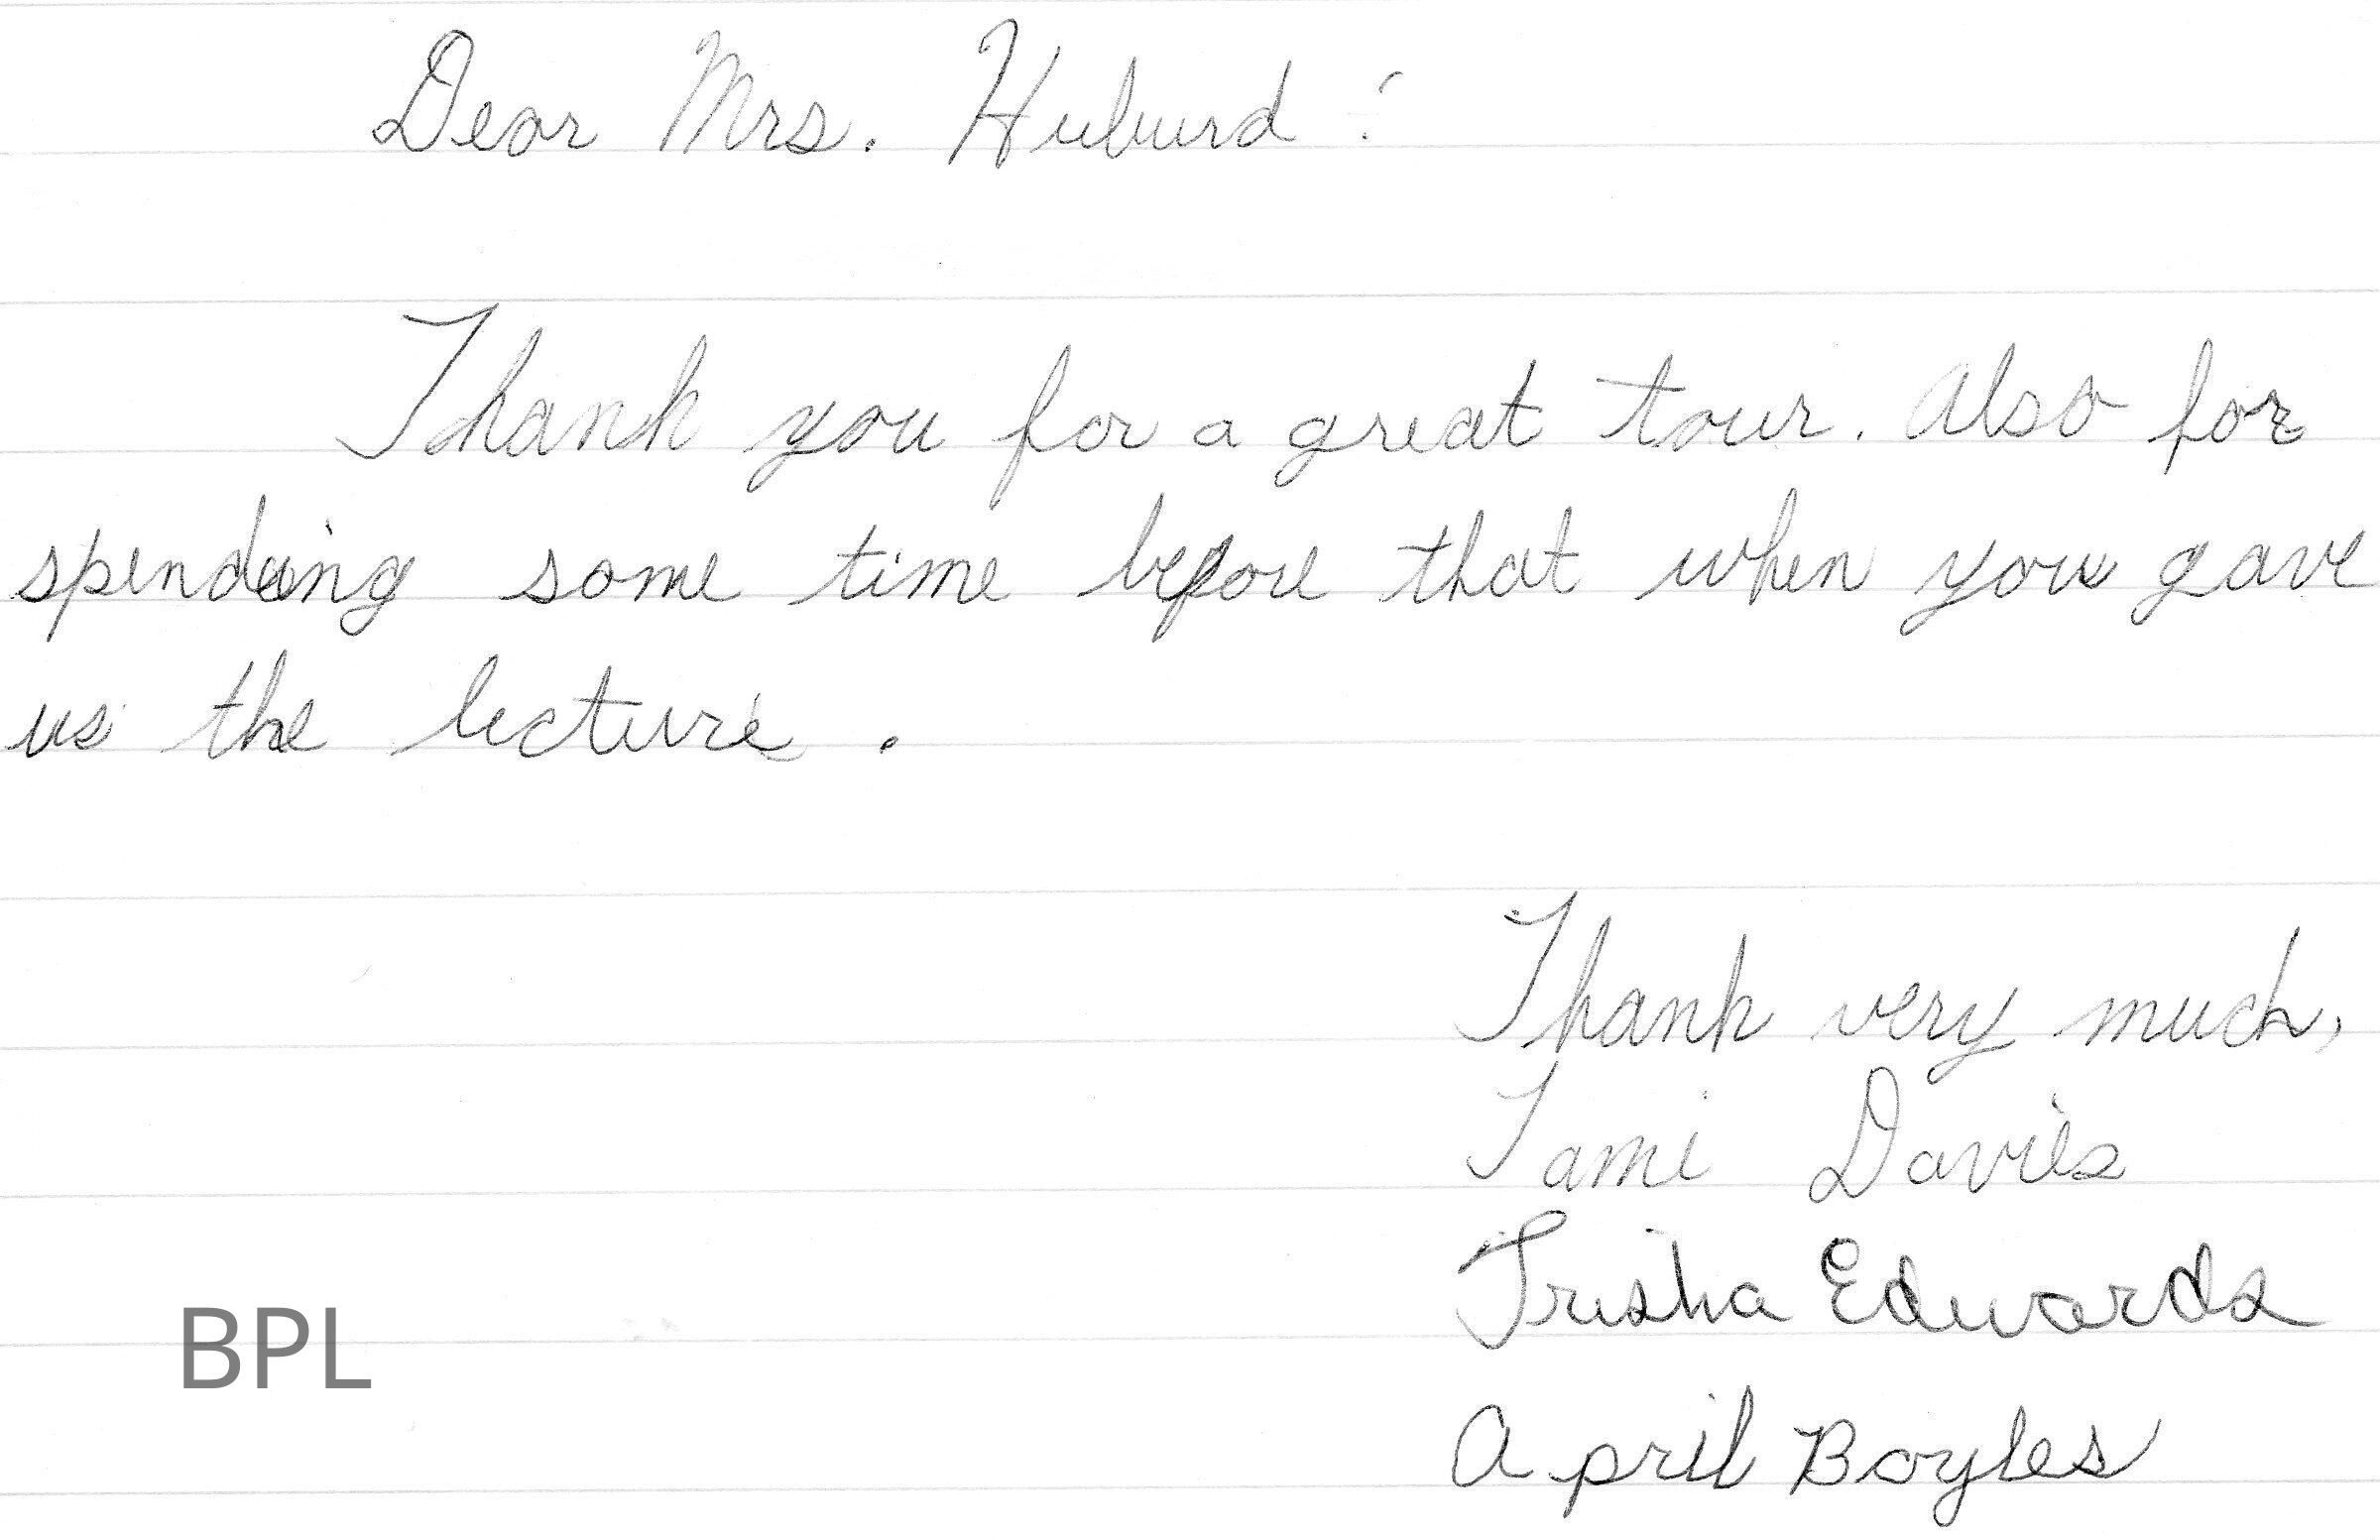 Dear Mrs. Huburd :
Thank you for a great tour. Also for
spending some time before that when you gave
us the lecture .
Thank very much,
Tami Davies
Trisha Edwards
April Boyles
BPL